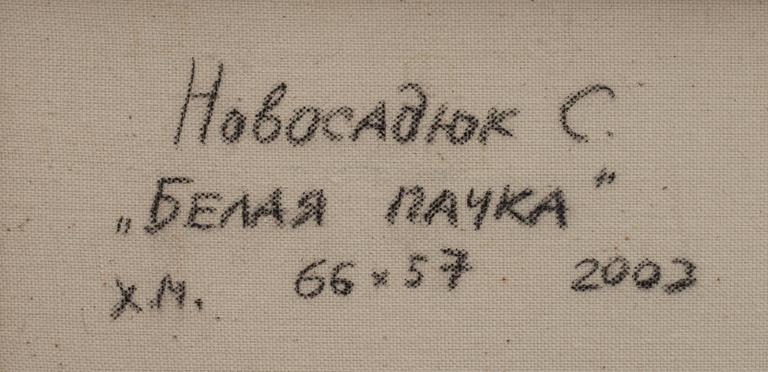 Новосадюк С.
„Белая пачка"
х.м. 66×57 2003